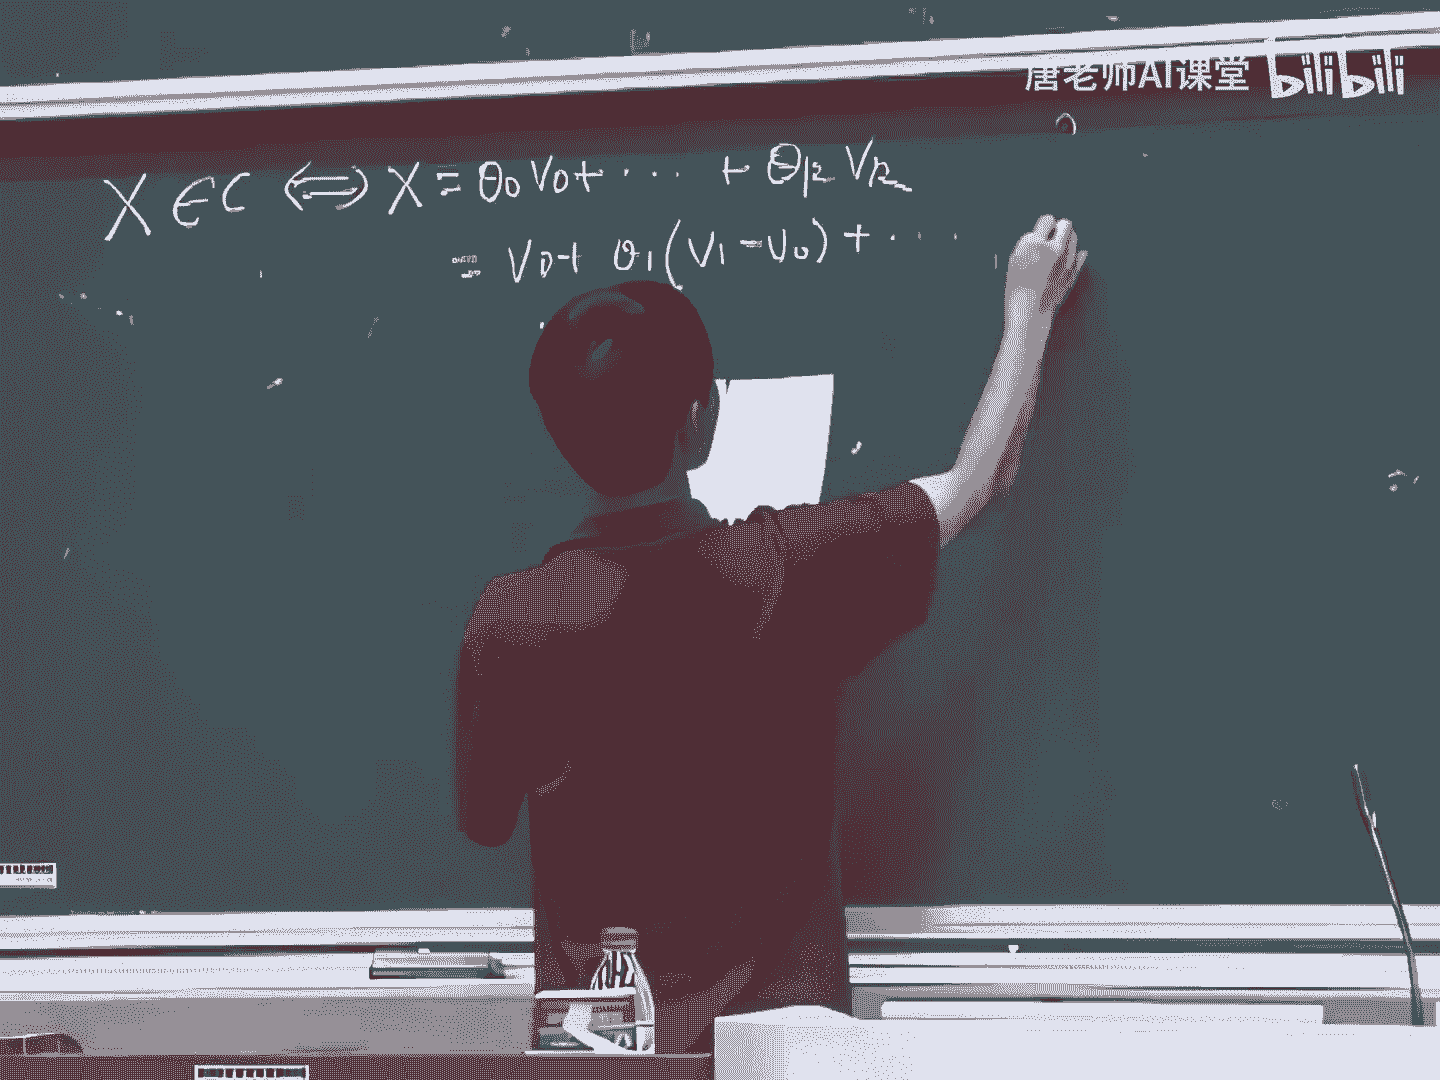 唐老师AI课堂 bilibili
X ∈ C ⟺ X = θ0 V0 + ··· + θk Vk
= V0 + θ1 (V1 - V0) + ···